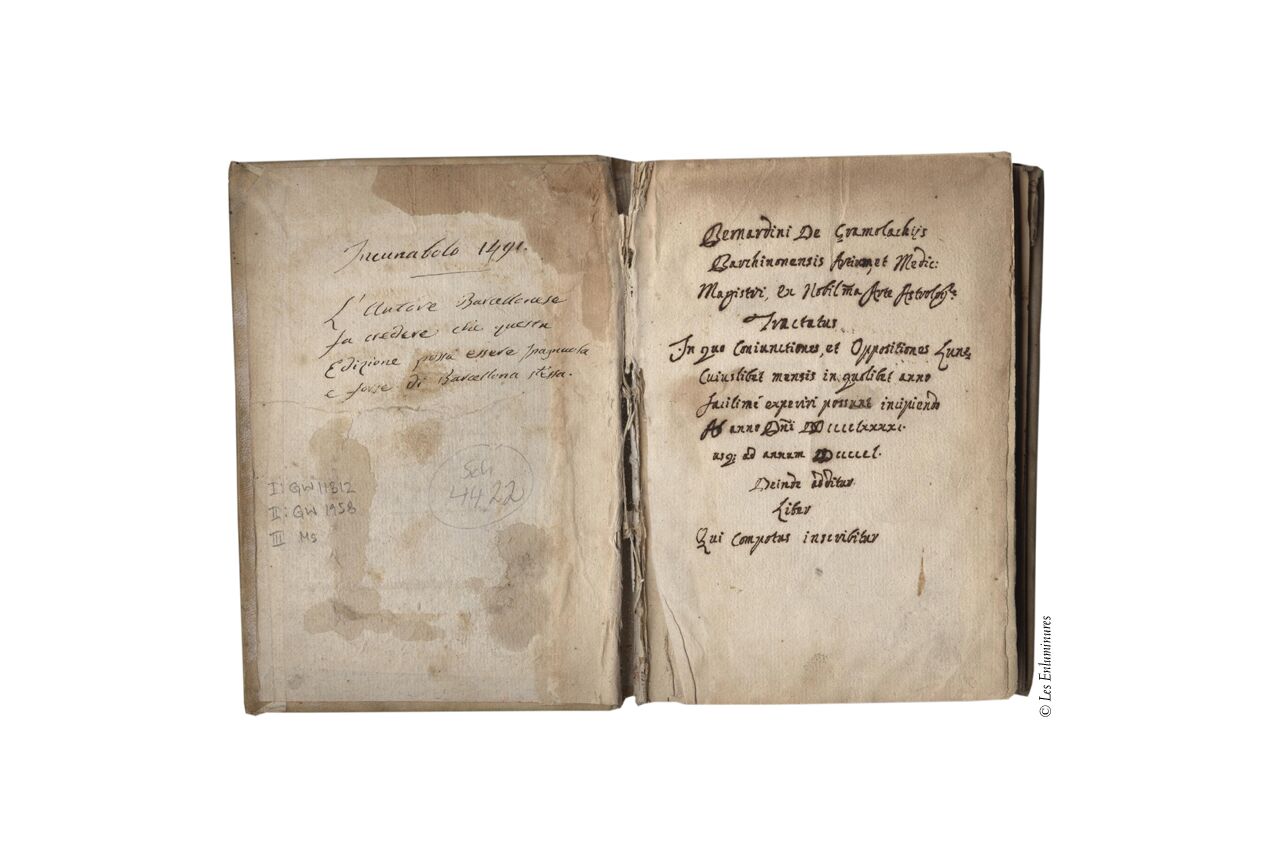 Incunabolo 1491.
L'Autore Barcellonese
fa credere che questa
Edizione possa essere spagnuola
e forse di Barcellona stessa.
I: GW 11312
II: GW 1958
III Ms
Sch
4422
Bernardini De Gramolachijs
Barchinonensis Artium, et Medic:
Magistri, ex Nobilma Arte Astrolog
Tractatus
In quo Coniunctiones, et Oppositiones Lune
Cuiuslibet mensis in quolibet anno
facilimé experiri possunt incipiendo
Ab anno Dni MCCCCLXXXXI.
usq: ad annum MCCCCCL.
Deinde additur
Liber
Qui Compotus inscribitur
© Les Enluminures